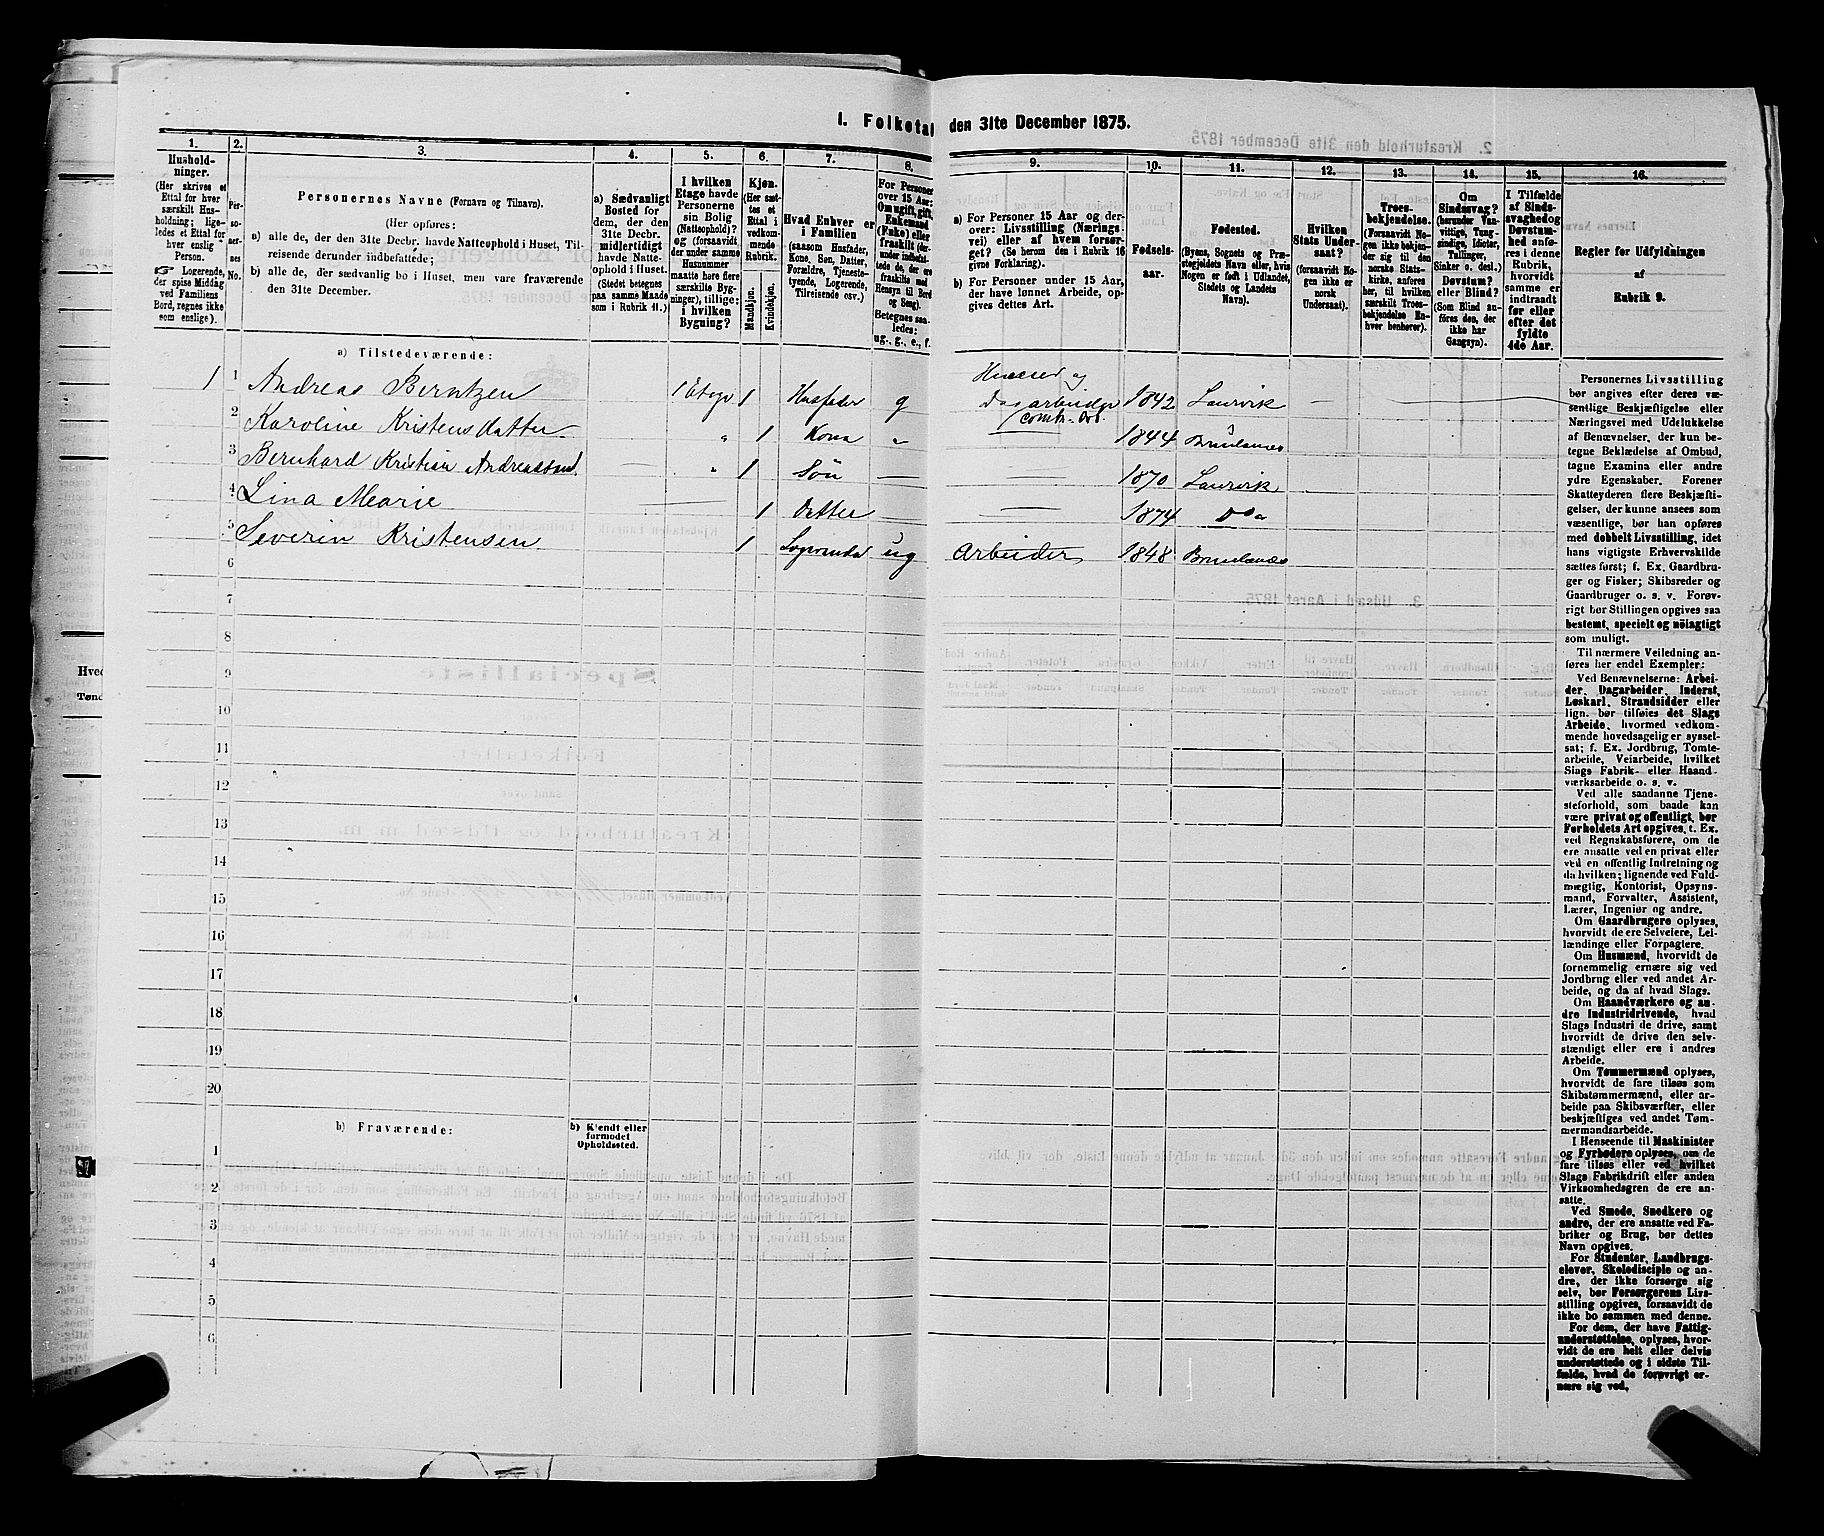 I. Folketal den 31te December 1875.
1. 2. 3. 4. 5. 6. 7. 8. 9. 10. 11. 12. 13. 14. 15. 16.
Husholdninger.
(Her skrives et Ettal for hver særskilt Husholdning; ligeledes et Ettal for hver enslig Person.
☞ Logerende, der spise Middag ved Familiens Bord, regnes ikke som enslige).
Personernes No.
Personernes Navne (Fornavn og Tilnavn).
(Her opføres:
a) alle de, der den 31te Decbr. havde Natteophold i Huset, Tilreisende derunder indbefattede;
b) alle de, der sædvanlig bo i Huset, men vare fraværende den 31te December.
a) Sædvanligt Bosted for dem, der den 31te Decbr. midlertidigt havde Natteophold i Huset. (Stedet betegnes paa samme Maade som i Rubrik 11.)
I hvilken Etage havde Personerne sin Bolig (Natteophold)? og (forsaavidt der under samme Husnummer maatte høre flere særskilte Bygninger), tillige: i hvilken Bygning?
Kjøn.
(Her sættes et Ettal i vedkommende Rubrik.
Mandkjøn. Kvindekjøn.
Hvad Enhver er i Familien
(saasom Husfader, Kone, Søn, Datter, Forældre, Tjenestetyende, Logerende, Tilreisende osv.)
For Personer over 15 Aar: Om ugift, gift, Enkemand (Enke) eller fraskilt (derunder indbefattede de, der ere fraskilte med Hensyn til Bord og Seng). Betegnes saaledes: ug., g., e., f.
a) For Personer 15 Aar og derover: Livsstilling (Næringsvei) eller af hvem forsørget? (Se herom den i Rubrik 16 givne Forklaring).
b) For Personer under 15 Aar, der have lønnet Arbeide, opgives dettes Art.
Fødselsaar.
Fødested.
(Byens, Sognets og Præstegjeldets Navn eller, hvis Nogen er født i Udlandet, Stedets og Landets Navn).
Hvilken Stats Undersaat?
(forsaavidt Nogen ikke er norsk Undersaat).
Troesbekjendelse.
(Forsaavidt Nogen ikke bekjender sig til den norske Statskirke, anføres her, til hvilken særskilt Troesbekjendelse Enhver henhører).
Om Sindssvag? (herunder Vanvittige, Tungsindige, Idioter, Tullinger, Sinker o. desl.) Døvstum? eller Blind? (Som Blind anføres den, der ikke har Gangsyn).
I Tilfælde af Sindssvaghed og Døvstumhed anføres i denne Rubrik, hvorvidt samme er indtraadt før eller efter det fyldte 4de Aar.
Regler for Udfyldningen af Rubrik 9.
a) Tilstedeværende:
1 1 Andreas Berntzen 1 Etage 1 Husfader g Huseier og dagarbeider 1842 Laurvik
2 Karoline Kristensdatter " 1 Kona " 1844 Brunlanes
3 Bernhard Kristian Andreassen " 1 Søn 1870 Laurvik
4 Lina Marie 1 Datter 1874 Do
5 Severin Kristensen 1 Logerende ug Arbeider 1848 Brunlanes
6
7
8
9
10
11
12
13
14
15
16
17
18
19
20
b) Fraværende:
b) Kjendt eller formodet Opholdssted.
1
2
3
4
5
6
Personernes Livsstilling
bør angives efter deres væ-
sentlige Beskjæftigelse eller
Næringsvei med Udelukkelse
af Benævnelser, der kun be-
tegne Beklædelse af Ombud,
tagne Examina eller andre
ydre Egenskaber. Forener
Skatteyderen flere Beskjæfti-
gelser, der kunne ansees som
væsentlige, bør han opføres
med dobbelt Livsstilling, idet
hans vigtigste Erhvervskilde
sættes først; f. Ex. Gaardbru-
ger og Fisker; Skibsreder og
Gaardbruger o. s. v. Forøv-
rigt bør Stillingen opgives saa
bestemt, specielt og nöiagtigt
som muligt.
Til nærmere Veiledning an-
føres her endel Exempler:
Ved Benævnelserne: Arbei-
der, Dagarbeider, Inderst,
Løskarl, Strandsidder eller
lign. bør tilføies det Slags
Arbeide, hvormed vedkom-
mende hovedsagelig er syssel-
sat; f. Ex. Jordbrug, Tomte-
arbeide, Veiarbeide, hvilket
Slags Fabrik- eller Haand-
værksarbeide o. s. v.
Ved alle saadanne Tjene-
steforhold, som baade kan
være privat og offentligt, bør
Forholdets Art opgives, t. Ex.
ved Regnskabsførere, om de
ere ansatte ved en privat eller
ved en offentlig Indretning og
da hvilken; lignende ved Fuld-
mægtig, Kontorist, Opsyns-
mand, Forvalter, Assistent,
Lærer, Ingeniør og andre.
Om Gaardbrugere oplyses,
hvorvidt de ere Selveiere, Lei-
lændinge eller Forpagtere.
Om Husmænd, hvorvidt de
fornemmelig ernære sig ved
Jordbrug eller ved andet Ar-
beide, og da af hvad Slags.
Om Haandværkere og an-
dre Industridrivende, hvad
Slags Industri de drive, samt
hvorvidt de drive den selv-
stændigt eller ere i andres
Arbeide.
Om Tømmermænd oplyses,
hvorvidt de fare tilsøs som
Skibstømmermænd, eller ar-
beide paa Skibsværfter, eller
beskjæftiges ved andet Tøm-
mermandsarbeide.
I Henseende til Maskinister
og Fyrbødere oplyses, om de
fare tilsøs eller ved hvilket
Slags Fabrikdrift eller anden
Virksomhedsgren de ere an-
satte.
Ved Smede, Snedkere og
andre, der ere ansatte ved Fa-
briker og Brug, bør dettes
Navn opgives.
For Studenter, Landbrugs-
elever, Skoledisciple og an-
dre, der ikke forsørge sig
selv, bør Forsørgerens Livs-
stilling opgives, forsaavidt de
ikke bo sammen med denne.
For dem, der have Fattig-
understøttelse, oplyses, hvor-
vidt de ere helt eller delvis
understøttede og i sidste Til-
fælde, hvad de forøvrigt er-
nære sig ved.